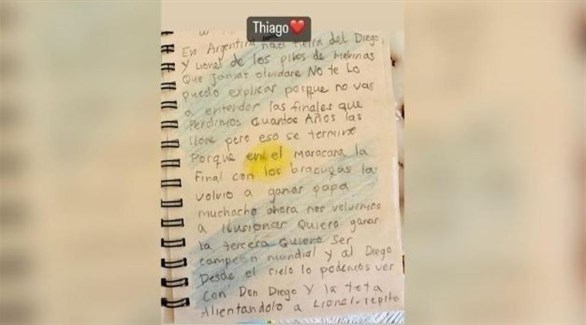 Thiago❤️
En Argentina nací tierra del Diego
y Lionel de los pibes de Melvinas
Que jamas olvidare No te Lo
puedo explicar porque no vas
a entender las finales que
Perdimos Cuantos Años las
llore pero eso se termino
Porque en el maracana la
final con los brazucas la
volvio a ganar papa
muchacho ahora nos volvimos
a ilusionar Quiero ganar
la tercera Quiero ser
campeon mundial y al Diego
Desde el cielo lo podemos ver
con Don Diego y la tota
Alientandolo a Lionel